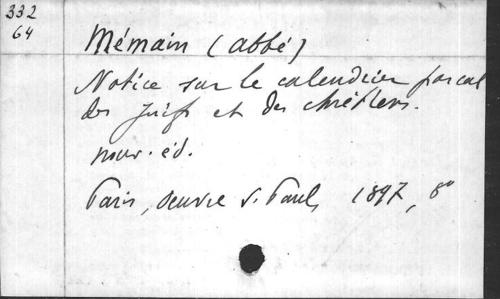 332
64
Mémain (abbé)
Notice sur le calendrier pascal
des Juifs et des chrétiens.
nouv. éd.
Paris, oeuvre S. Paul, 1897, 8°